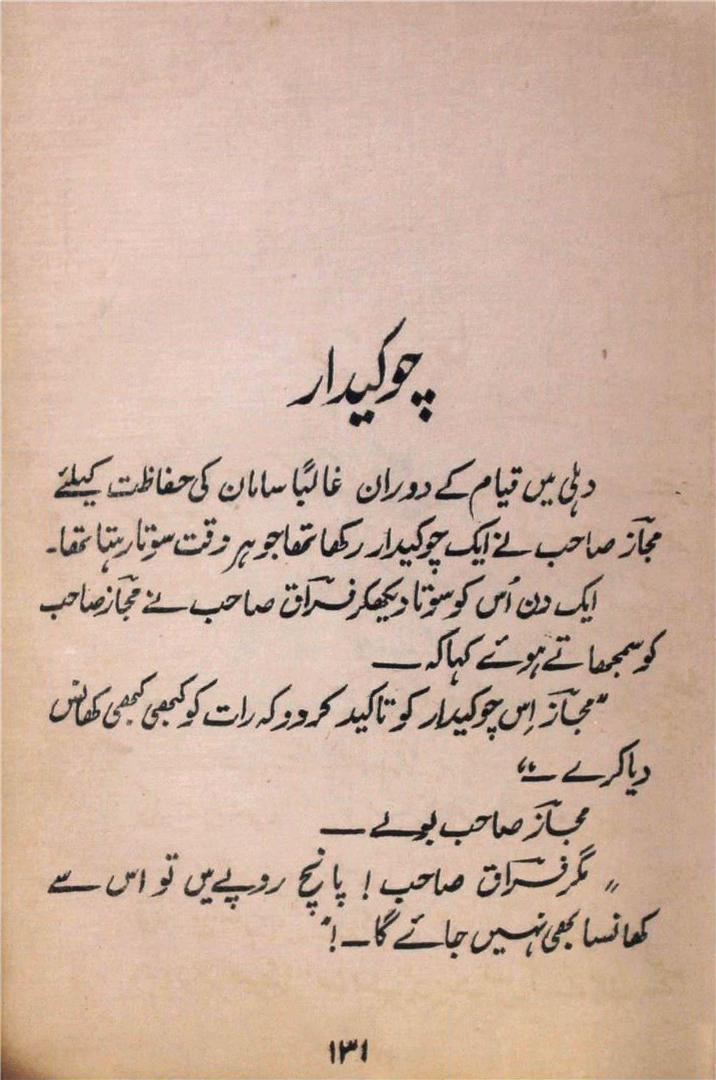 چوکیدار
دہلی میں قیام کے دوران غالباً سامان کی حفاظت کیلئے
مجازؔ صاحب نے ایک چوکیدار رکھا تھا جو ہر وقت سوتا رہتا تھا۔
ایک دن اُس کو سوتا دیکھکر فراقؔ صاحب نے مجازؔ صاحب
کو سمجھاتے ہوئے کہا کہ ــــ
"مجازؔ اِس چوکیدار کو تاکید کر دو کہ رات کو کبھی کبھی کھانس
دیا کرے ــ"
مجازؔ صاحب بولے ــــ
"مگر فراقؔ صاحب! پانچ روپے میں تو اس سے
کھانسا بھی نہیں جائے گا ــ!"
۱۳۱